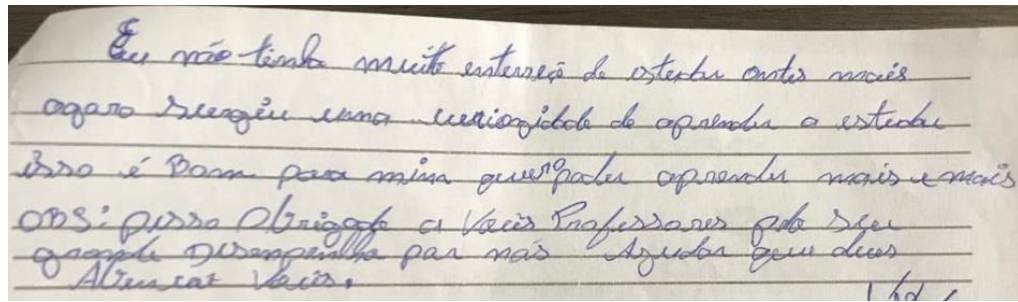 Eu não tinha muito enterreçe de estudar antes mais
agora surgiu uma curiozidade de aprender a estudar
isso é Bom para mim quero poder aprender mais e mais
OBS: posso Obrigado a Vocês Professores pelo seu
grande Desempenho par nós Ajudar que deus
Abençoar Vocês.